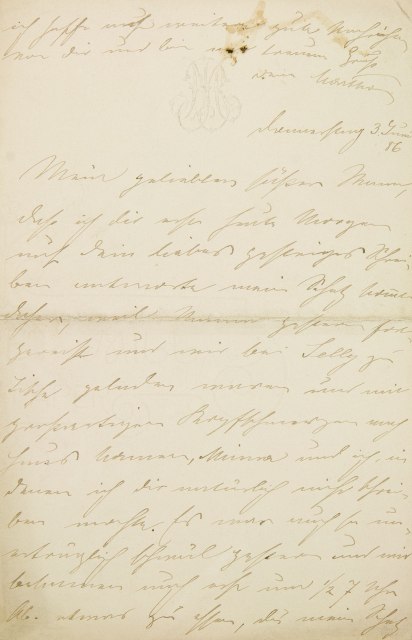 ich hoffe auf weitere gute Nachricht
von dir und bin mit treuem Gruß
dein
Donnerstag 3. Juni
86
Mein geliebter süßer Mann,
daß ich dir erst heute Morgen
auf dein liebes gestriges Schrei-
ben antworte mein Schatz kommt
daher, weil Mama gestern fort-
gereist und wir bei Selly zu
Tische geladen waren und mit
großartigen Kopfschmerzen nach
Haus kamen, Minna und ich, in
denen ich dir natürlich nicht schrei-
ben mochte. Es war auch so un-
erträglich schwül gestern und wir
bekamen auch erst um 1/2 7 Uhr
Ab. etwas zu essen, da mein Schatz